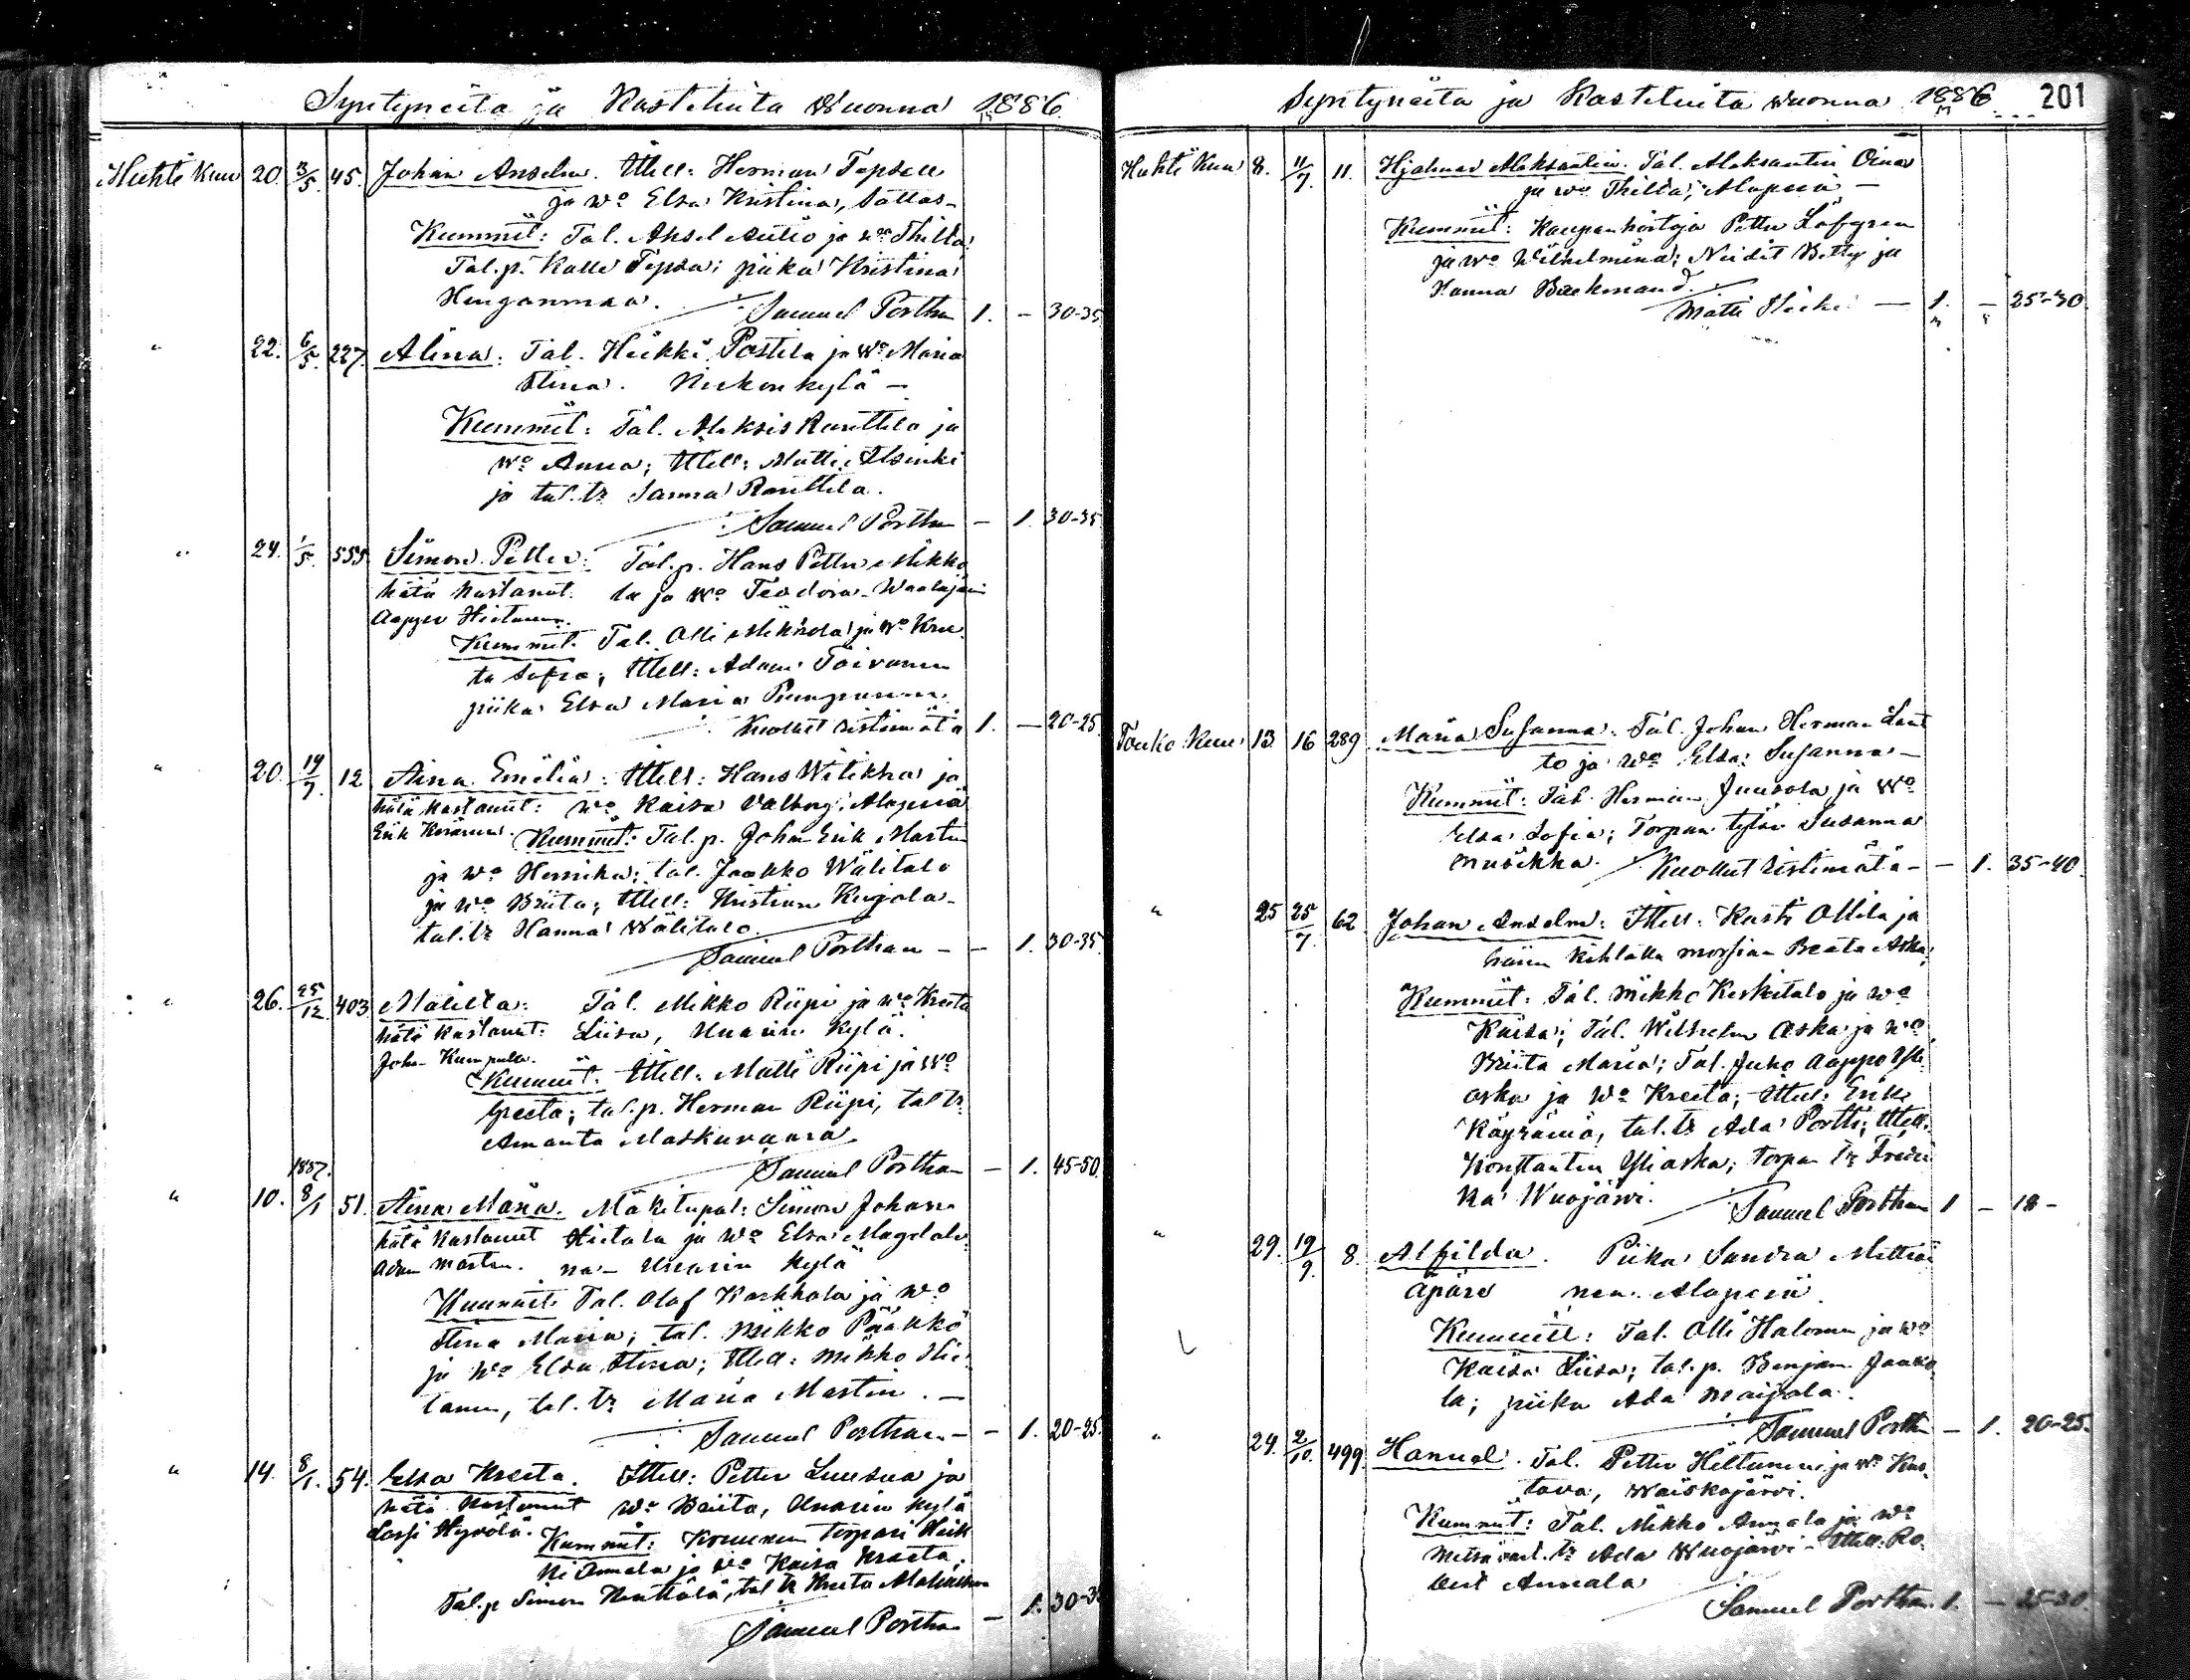 Syntyneitä ja Kastetuita Wuonna 1886.
Huhti Kuu 20. 3/5. 45. Johan Anselm. Itsell: Herman Tepsell
ja wo Elsa Kristina, Sattas-
Kummit: Tal. Aksel Autio ja wo Thilda;
Tal. p. Kalle Tepsa; piika Kristina
Hunganmaa.
Samuel Porthan 1. - 30-35
" 22. 6/5. 227. Alina: Tal. Heikki Postila ja Wo Maria
Stina. Kieken kylä -
Kummit: Tal. Aleksis Ranttila ja
wo Anna; Itsell: Matti
ja tal. tr Sanna Ranttila.
Samuel Porthan - 1. 30-35
" 24. 1/5. 555 Simon Petter: Tal. p. Hans Petter Mikko
hätä kastanut: la ja wo Teodora - Waalajärvi
Aappo Hietanen.
Kummit: Tal. Olli Mikkola ja wo Kree
ta Sofia; Itsell: Adam Toivanen
piika Elsa Maria Pumpanen.
Kuollut ristimätä 1. - 20-25
" 20. 19/7. 12 Aina Emilia: Itsell: Hans Witikka ja
hätä kastanut: wo Kaisa Valborg; Alaperä
Erik Keränen. Kummit: Tal. p. Johan Erik Martin
ja wo Henrika; tal. Jaakko Wälitalo
ja wo Briita; Itsell: Kristian Kujala -
tal. tr Hanna Wälitalo.
Samuel Porthan - - 1. 30-35.
" 26. 25/12 403 Matilda: Tal. Mikko Riipi ja wo Kreeta
hätä kastanut: Liisa, Unarin kylä.
Johan Kumpula.
Kummit: Itsell: Matti Riipi ja wo
Greeta; tal. p. Herman Riipi, tal tr
Amanta Maskuvaara
Samuel Porthan - 1. 45-50
1887.
" 10. 8/1 51. Aina Maria. Mäkitupal: Simon Johan
hätä kastanut Hietala ja wo Elsa Magdale
Adam Martin. na - Unarin kylä
Kummit: Tal. Olof Karkkola ja wo
Stina Maria; tal. Mikko Pääkkö
ja wo Elsa Stina; Itsell: Mikko Hie
tanen, tal. tr Maria Martin. -
Samuel Porthan - - 1. 20-25.
" 14. 8/1. 54. Elsa Kreeta. Itsell: Petter Luusua ja
hätä kastanut wo Briita, Unarin kylä
Lassi Hyvölä. Kummit: Kruunun torpari Heik
ki Annala ja wo Kaisa Kreeta;
Tal. p Simon Kenttälä, tal tr Kreeta
Samuel Porthan - 1. 30-35
Syntyneitä ja Kastetuita wuonna 1886 201
Huhti Kuu 8. 11/7. 11. Hjalmar Aleksantin. Tal. Aleksantin Oinas
ja wo Thilda; Alaperä -
Kummit: Kaupanhoitaja Petter Löfgren
ja wo Wilhelmina; Neidit Betty ja
Hanna Backmand.
Matti Heiki - 1. - 25-30
Touko Kuu 13 16 289 Maria Susanna: Tal. Johan Herman Laut
to ja wo Elsa Susanna -
Kummit: Tal. Herman Juusola ja wo
Elsa Sofia; Torpan tytär Susanna
Musikka. Kuollut ristimätä - - 1. 35-40.
" 25 25/7. 62 Johan Anselm: Itsell: Kusti Ollila ja
hänen kihlattu morsian Beata Aska
Kummit: Tal. Mikko Keskitalo ja wo
Kaisa; Tal. Wilhelm Aska ja wo
Briita Maria; Tal. Juho Aappo Yli
aska ja wo Kreeta; Itsell: Erik
Käyrämö, tal. tr Ada Portti; Itsell:
Konstantin Yliaska; Torpan tr Fredri
ka Wuojärvi.
Samuel Porthan 1 - 18 -
" 29. 19/9. 8. Alfilda. Piika Sandra Mattiai
äpäre nen. Alaperä
Kummit: Tal. Olli Halonen ja wo
Kaisa Liisa; tal. p. Benjam. Jaako
la; piika Ada Maijala.
Samuel Porthan - 1. 20-25.
" 24. 2/10. 499. Hanuel. Tal. Petter Hiltunen ja wo Kus
tava, Waiskojärvi.
Kummit: Tal. Mikko Annala ja wo
Metsävart. tr Ada Wuojärvi - Itsell: Ro
bert Annala
Samuel Porthan. 1. - 25-30.